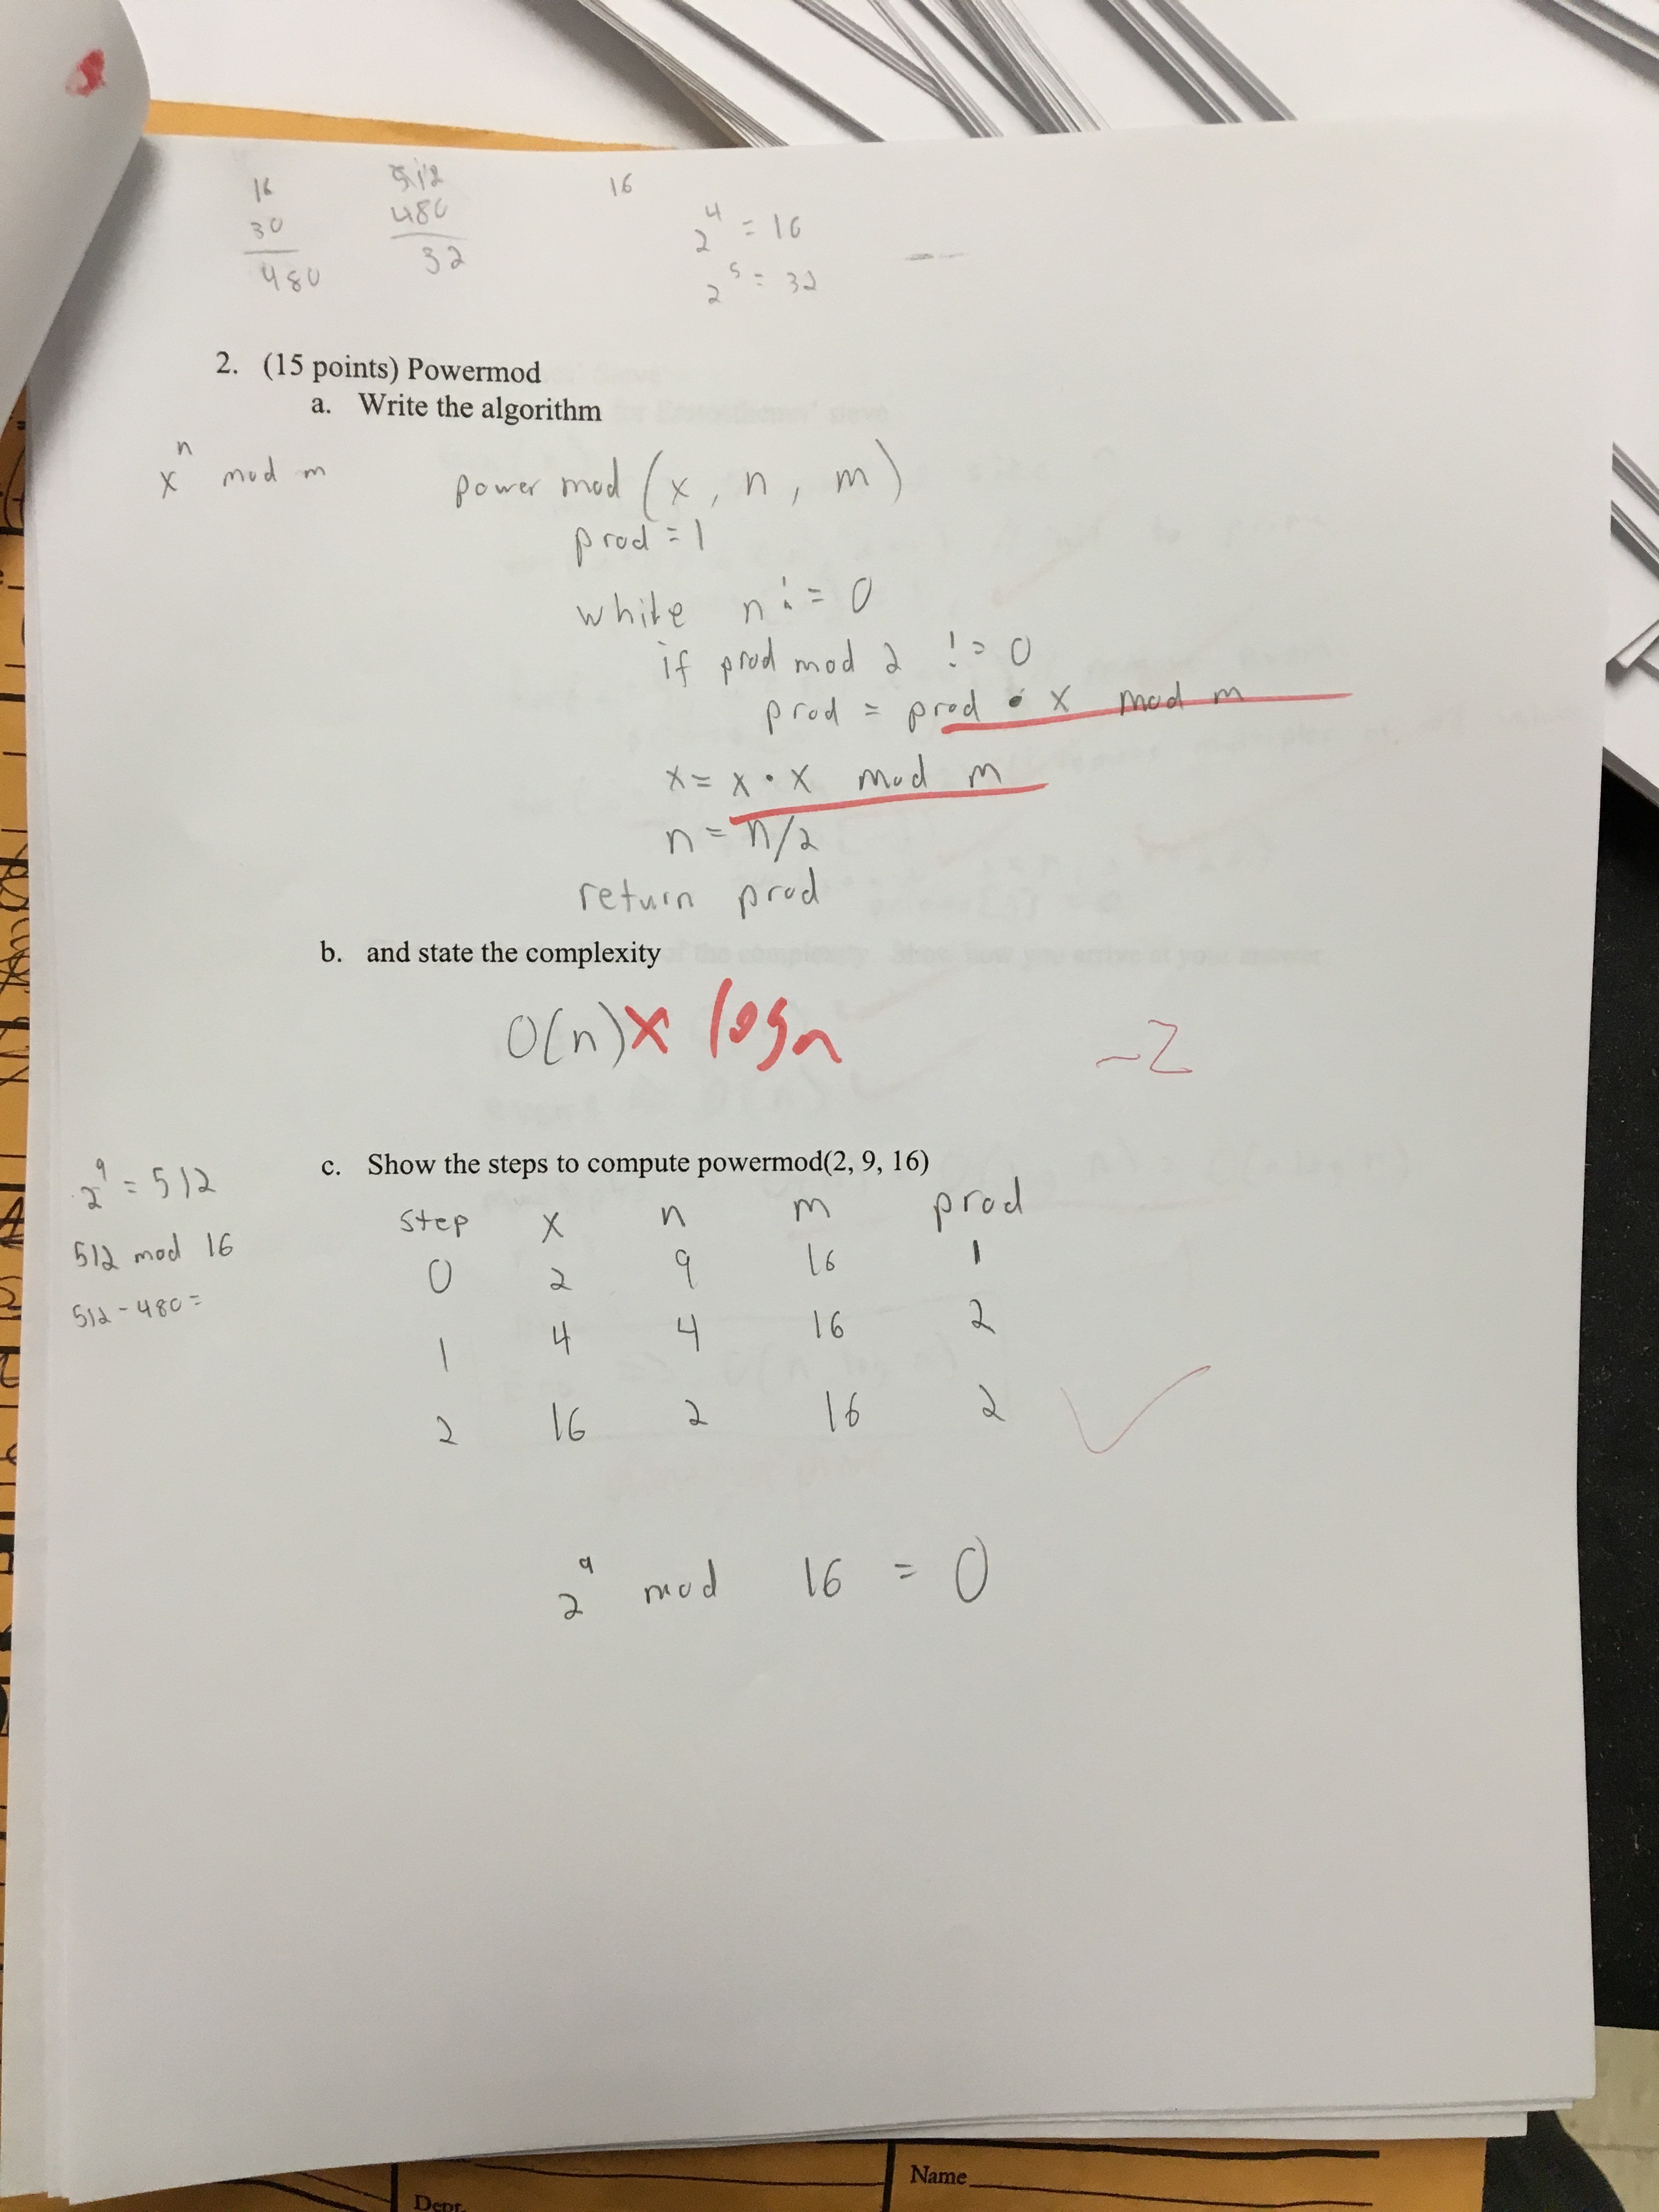 16
30
480
512
480
32
16
2^4 = 16
2^5 = 32
2. (15 points) Powermod
a. Write the algorithm
x^n mod m
power mod (x, n, m)
prod = 1
while n != 0
if prod mod 2 != 0
prod = prod • x mod m
x = x • x mod m
n = n/2
return prod
b. and state the complexity
O(n) x log n
-2
c. Show the steps to compute powermod(2, 9, 16)
2^9 = 512
512 mod 16
512 - 480 =
step x n m prod
0 2 9 16 1
1 4 4 16 2
2 16 2 16 2
2^9 mod 16 = 0
Name
Dept.